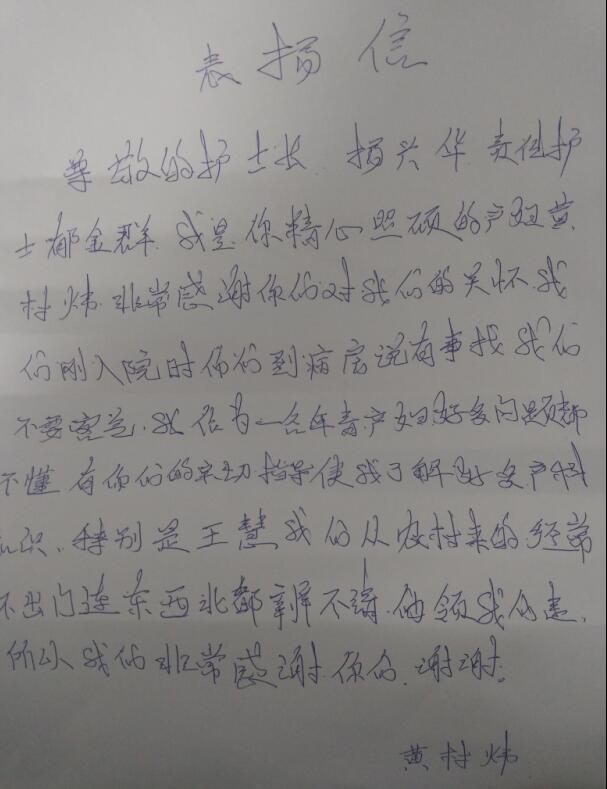 表扬信
尊敬的护士长 杨兴华 责任护
士郁金群。我是你精心照顾的产妇黄
村炜。非常感谢你们对我们的关怀。我
们刚入院时你们到病房说有事找我们
不要客气。我作为一名年青产妇好多问题都
不懂 有你们的主动指导使我了解许多产科
知识。特别是王慧我们从农村来的经常
不出门连东西北都辨不清。他领我们走。
所以我们非常感谢你们。谢谢。
黄村炜